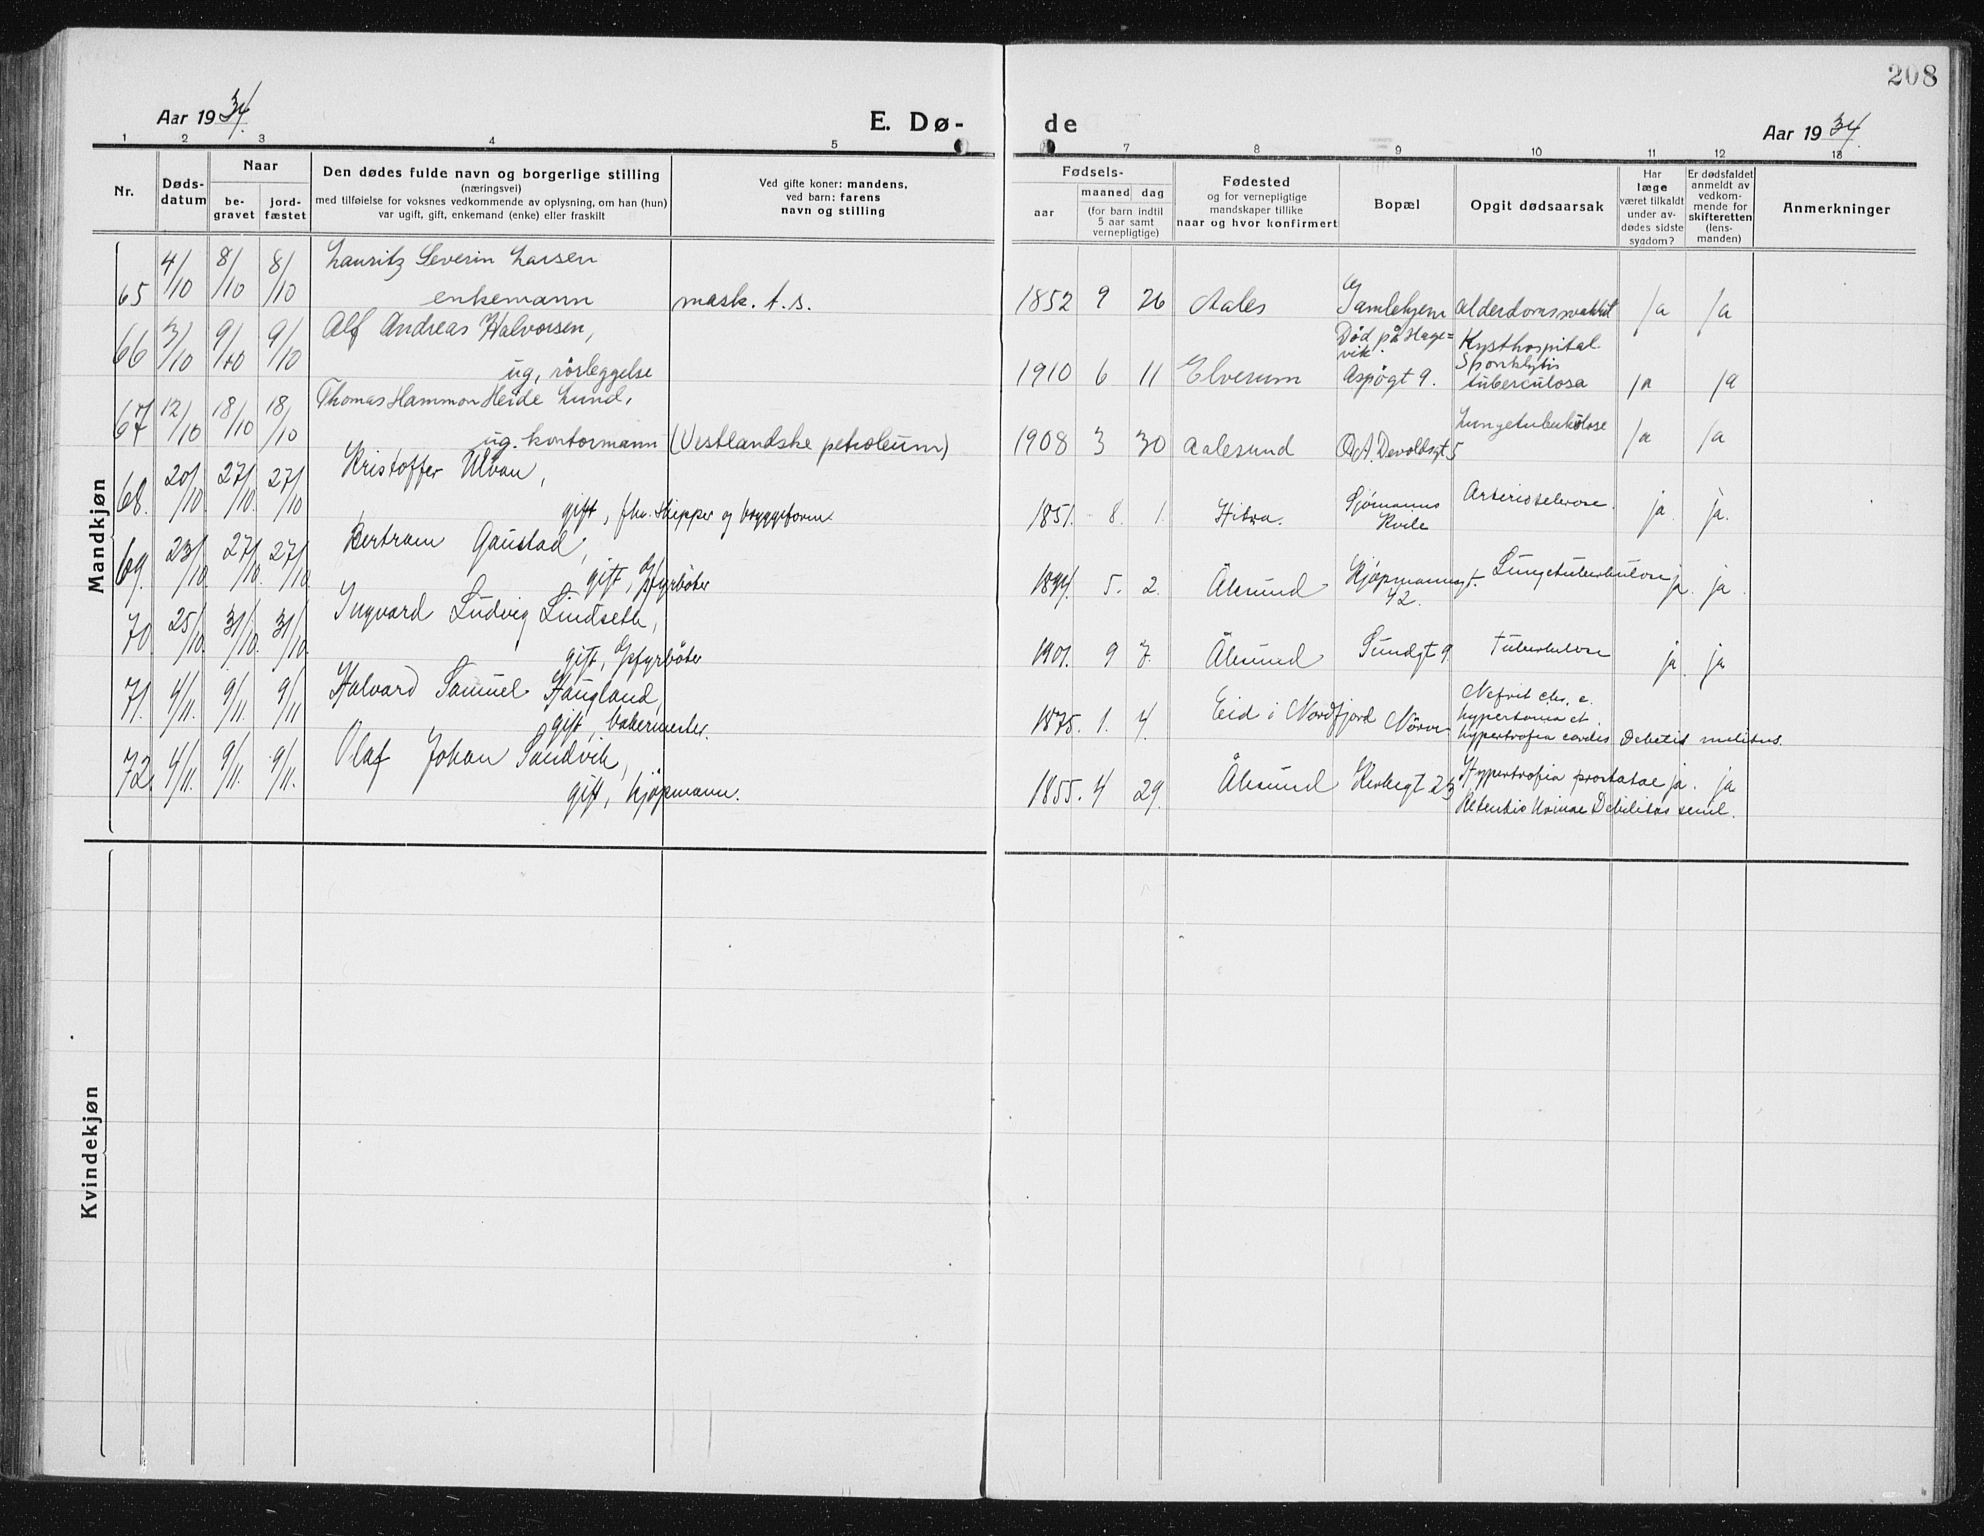 208
Aar 1934.
E. Dø-
de
Aar 1934.
1 2 3 4 5 7 8 9 10 11 12 13
Nr.
Døds-
datum
Naar
be-
gravet
jord-
fæstet
Den dødes fulde navn og borgerlige stilling
(næringsvei)
med tilføielse for voksnes vedkommende av oplysning, om han (hun)
var ugift, gift, enkemand (enke) eller fraskilt
Ved gifte koner: mandens,
ved barn: farens
navn og stilling
Fødsels-
aar
maaned dag
(for barn indtil
5 aar samt
vernepligtige)
Fødested
og for vernepligtige
mandskaper tillike
naar og hvor konfirmert
Bopæl
Opgit dødsaarsak
Har
læge
været tilkaldt
under av-
dødes sidste
sygdom?
Er dødsfaldet
anmeldt av
vedkom-
mende for
skifteretten
(lens-
manden)
Anmerkninger
Mandkjøn
65 4/10 8/10 8/10 Lauritz Severin Larsen
enkemann mask. t.s. 1852 9 26 Aales Gamlehjem alderdomssvakhet ja ja
66 3/10 9/10 9/10 Alf Andreas Halvorsen,
ug, rörleggelse 1910 6 11 Elverum
Død på Hage=
vik.
Aspøgt 9.
Kysthospital.
Sponklytis
tuberculosa ja ja
67 12/10 18/10 18/10 Thomas Hammon Heide Lund,
ug. kontormann (Vestlandske petroleum) 1908 3 30 Aalesund O.A. Devoldsgt 5 Lungetuberkulose ja ja
68. 20/10. 27/10. 27/10 Kristoffer Ulvan,
gift, fhv. skipper og bryggeform. 1851. 8. 1. Hitra. Sjømanns
Kvile
Arteriosclerose. ja ja.
69. 23/10. 27/10. 27/10. Bertram Gaustad,
gift, fyrbøter 1894. 5. 2. Ålesund Kjøpmannsgt.
42.
Lungetuberkulose ja. ja.
70. 25/10. 31/10. 31/10. Ingvard Ludvig Lindseth,
gift, fyrbøter 1901. 9 7. Ålesund Sundgt 9. Tuberkulose ja. ja
71. 4/11. 9/11. 9/11 Halvard Samuel Haugland,
gift, bakermester. 1875. 1. 4. Eid i Nordfjord Nörve
Nefrit chr. c.
hypertonia et.
hypertrofia cordis Debetis melitus.
72. 4/11. 9/11. 9/11. Olaf Johan Sandvik,
gift, kjøpmann. 1855. 4 29. Ålesund Kirkegt 23
Hypertrofia prostatae ja. ja
Retentio Urinae Debilitas senil.
Kvindekjøn